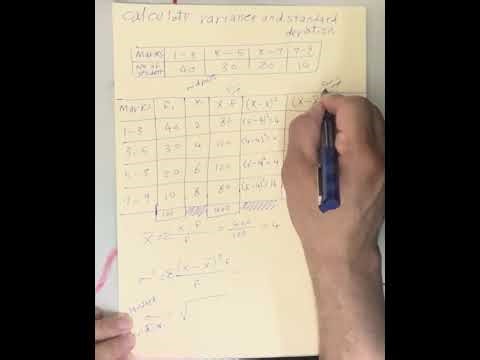 calculate variance and standard
deviation
Marks 1-3 3-5 5-7 7-9
No of student 40 30 20 10
midpoint
Marks x x.f (x-x̄)² (x-
1-3 40 2 80 =4
3-5 30 4 120 (4-4)²=
5-7 20 6 120 (6-4)²=4
7-9 10 8 80 (8-4)²=16
100 400
x̄ = Σ x.f / f = 400/100 = 4
Σ(x-x̄)²f / f
= √